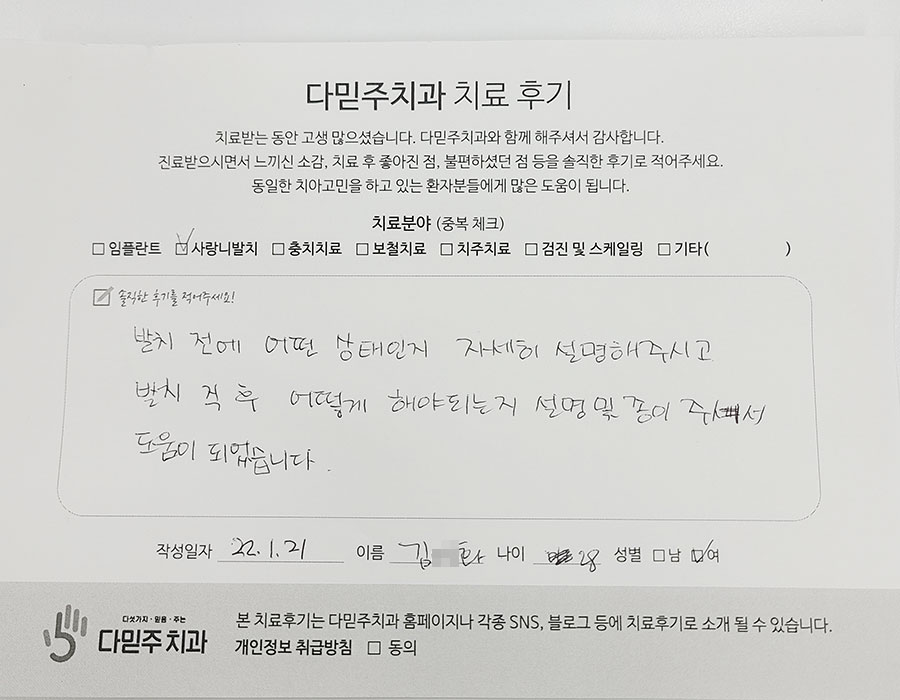 다믿주치과 치료 후기
치료받는 동안 고생 많으셨습니다. 다믿주치과와 함께 해주셔서 감사합니다.
진료받으시면서 느끼신 소감, 치료 후 좋아진 점, 불편하셨던 점 등을 솔직한 후기로 적어주세요.
동일한 치아고민을 하고 있는 환자분들에게 많은 도움이 됩니다.
치료분야 (중복 체크)
임플란트 사랑니발치 충치치료 보철치료 치주치료 검진 및 스케일링 기타( )
솔직한 후기를 적어주세요!
발치 전에 어떤 상태인지 자세히 설명해주시고
발치 직후 어떻게 해야되는지 설명 및 종이 주셔서
도움이 되었습니다.
작성일자 22.1.21 이름 김 화 나이 28 성별 남 여
다섯가지·믿음·주는
다믿주치과
본 치료후기는 다믿주치과 홈페이지나 각종 SNS, 블로그 등에 치료후기로 소개 될 수 있습니다.
개인정보 취급방침 동의